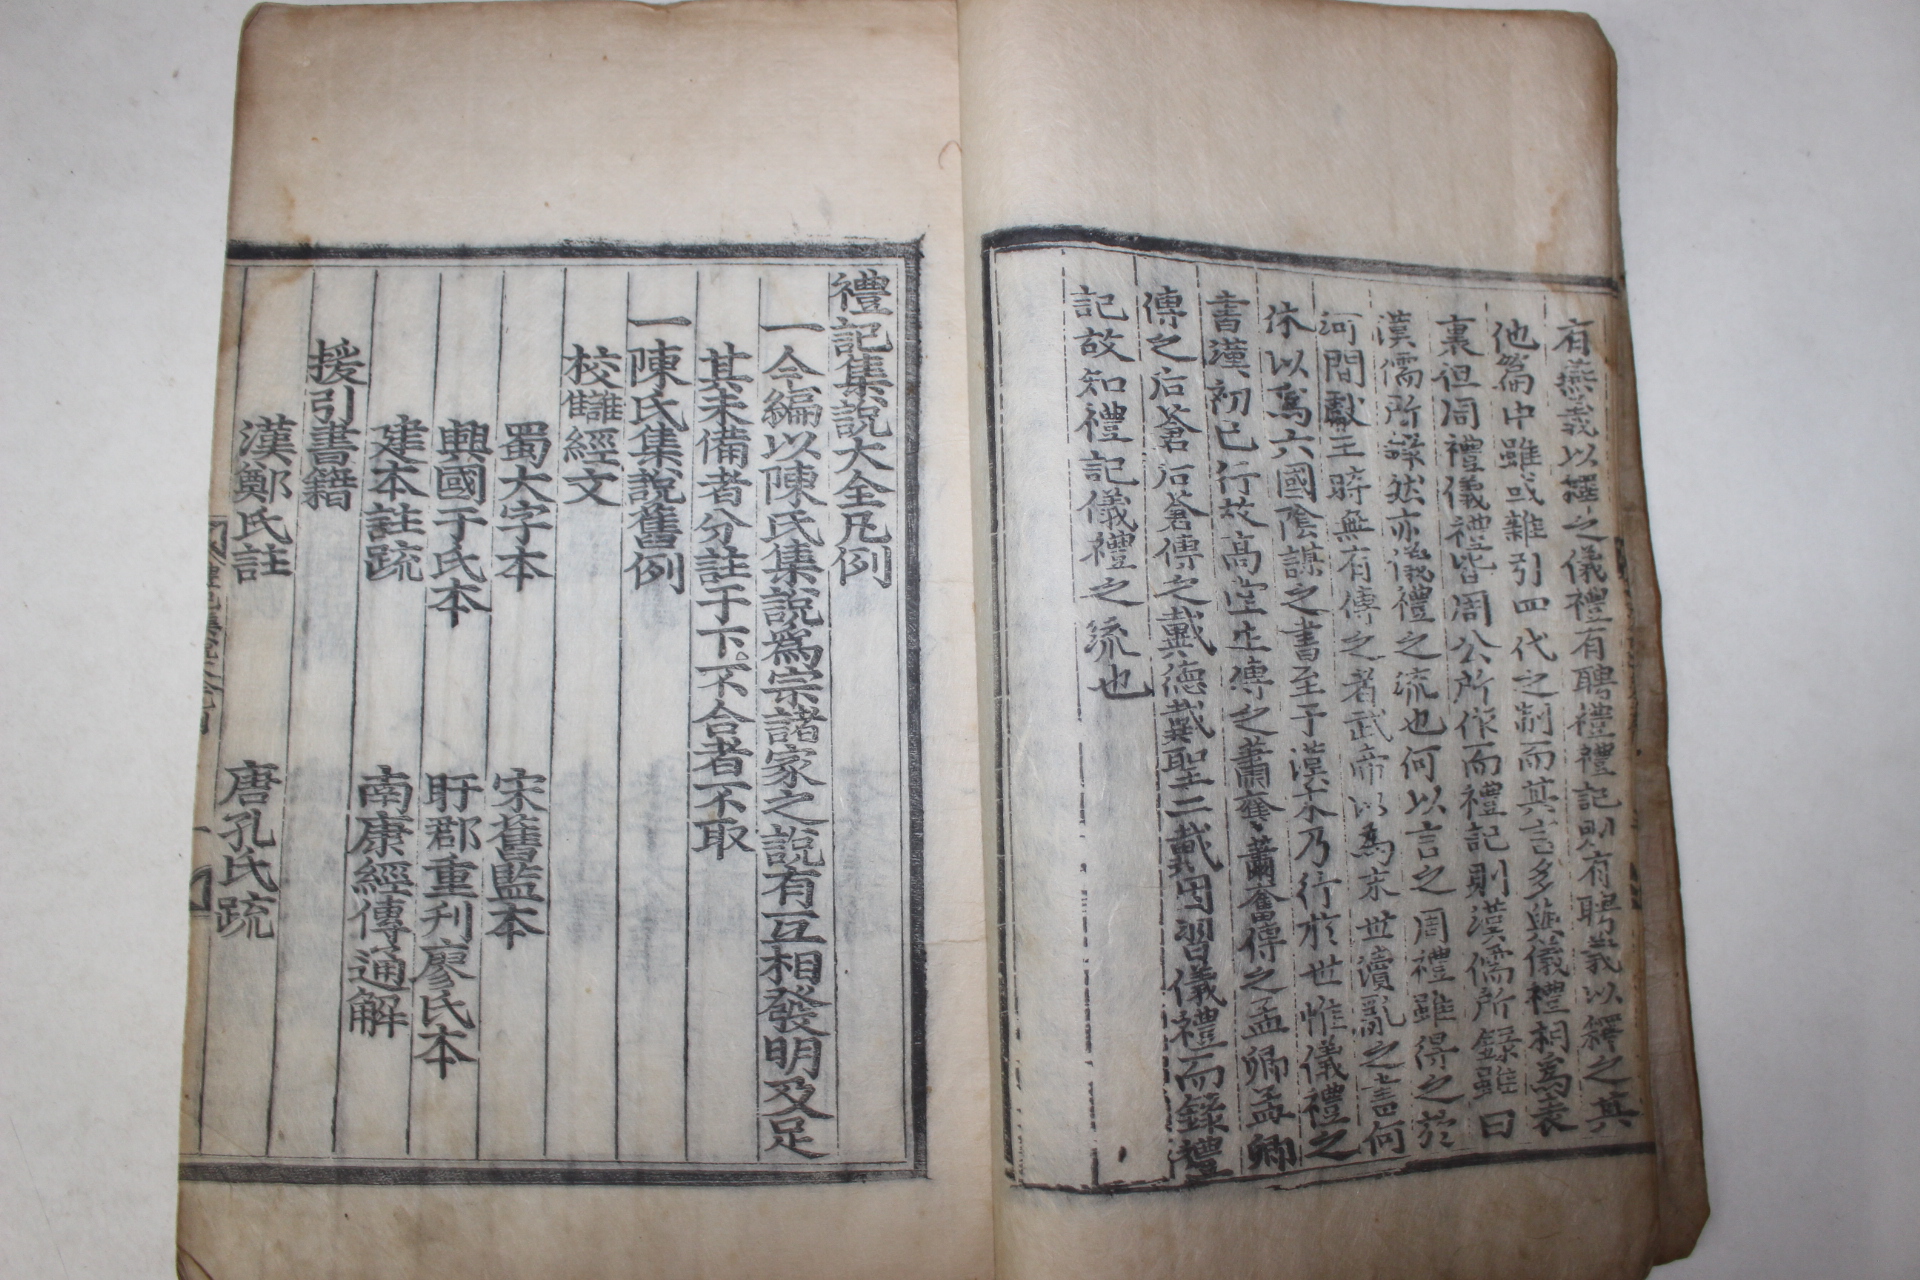 有燕義以釋之儀禮有聘禮禮記則有聘義以釋之其
他篇中雖或雜引四代之制而其言多與儀禮相爲表
裏但周禮儀禮皆周公所作而禮記則漢儒所錄雖曰
漢儒所錄然亦儀禮之流也何以言之周禮雖得之於
河間獻王時無有傳之者武帝以爲末世瀆亂之書何
休以爲六國陰謀之書至于漢末乃行於世惟儀禮之
書漢初已行故高堂生傳之蕭奮蕭奮傳之孟卿孟卿
傳之后蒼后蒼傳之戴德戴聖二戴因習儀禮而錄禮
記故知禮記儀禮之流也
禮記集說大全凡例
一今編以陳氏集說爲宗諸家之說有互相發明及足
其未備者分註于下不合者不取
一陳氏集說舊例
校讎經文
蜀大字本 宋舊監本
興國于氏本 盱郡重刋廖氏本
建本註疏 南康經傳通解
援引書籍
漢鄭氏註 唐孔氏疏